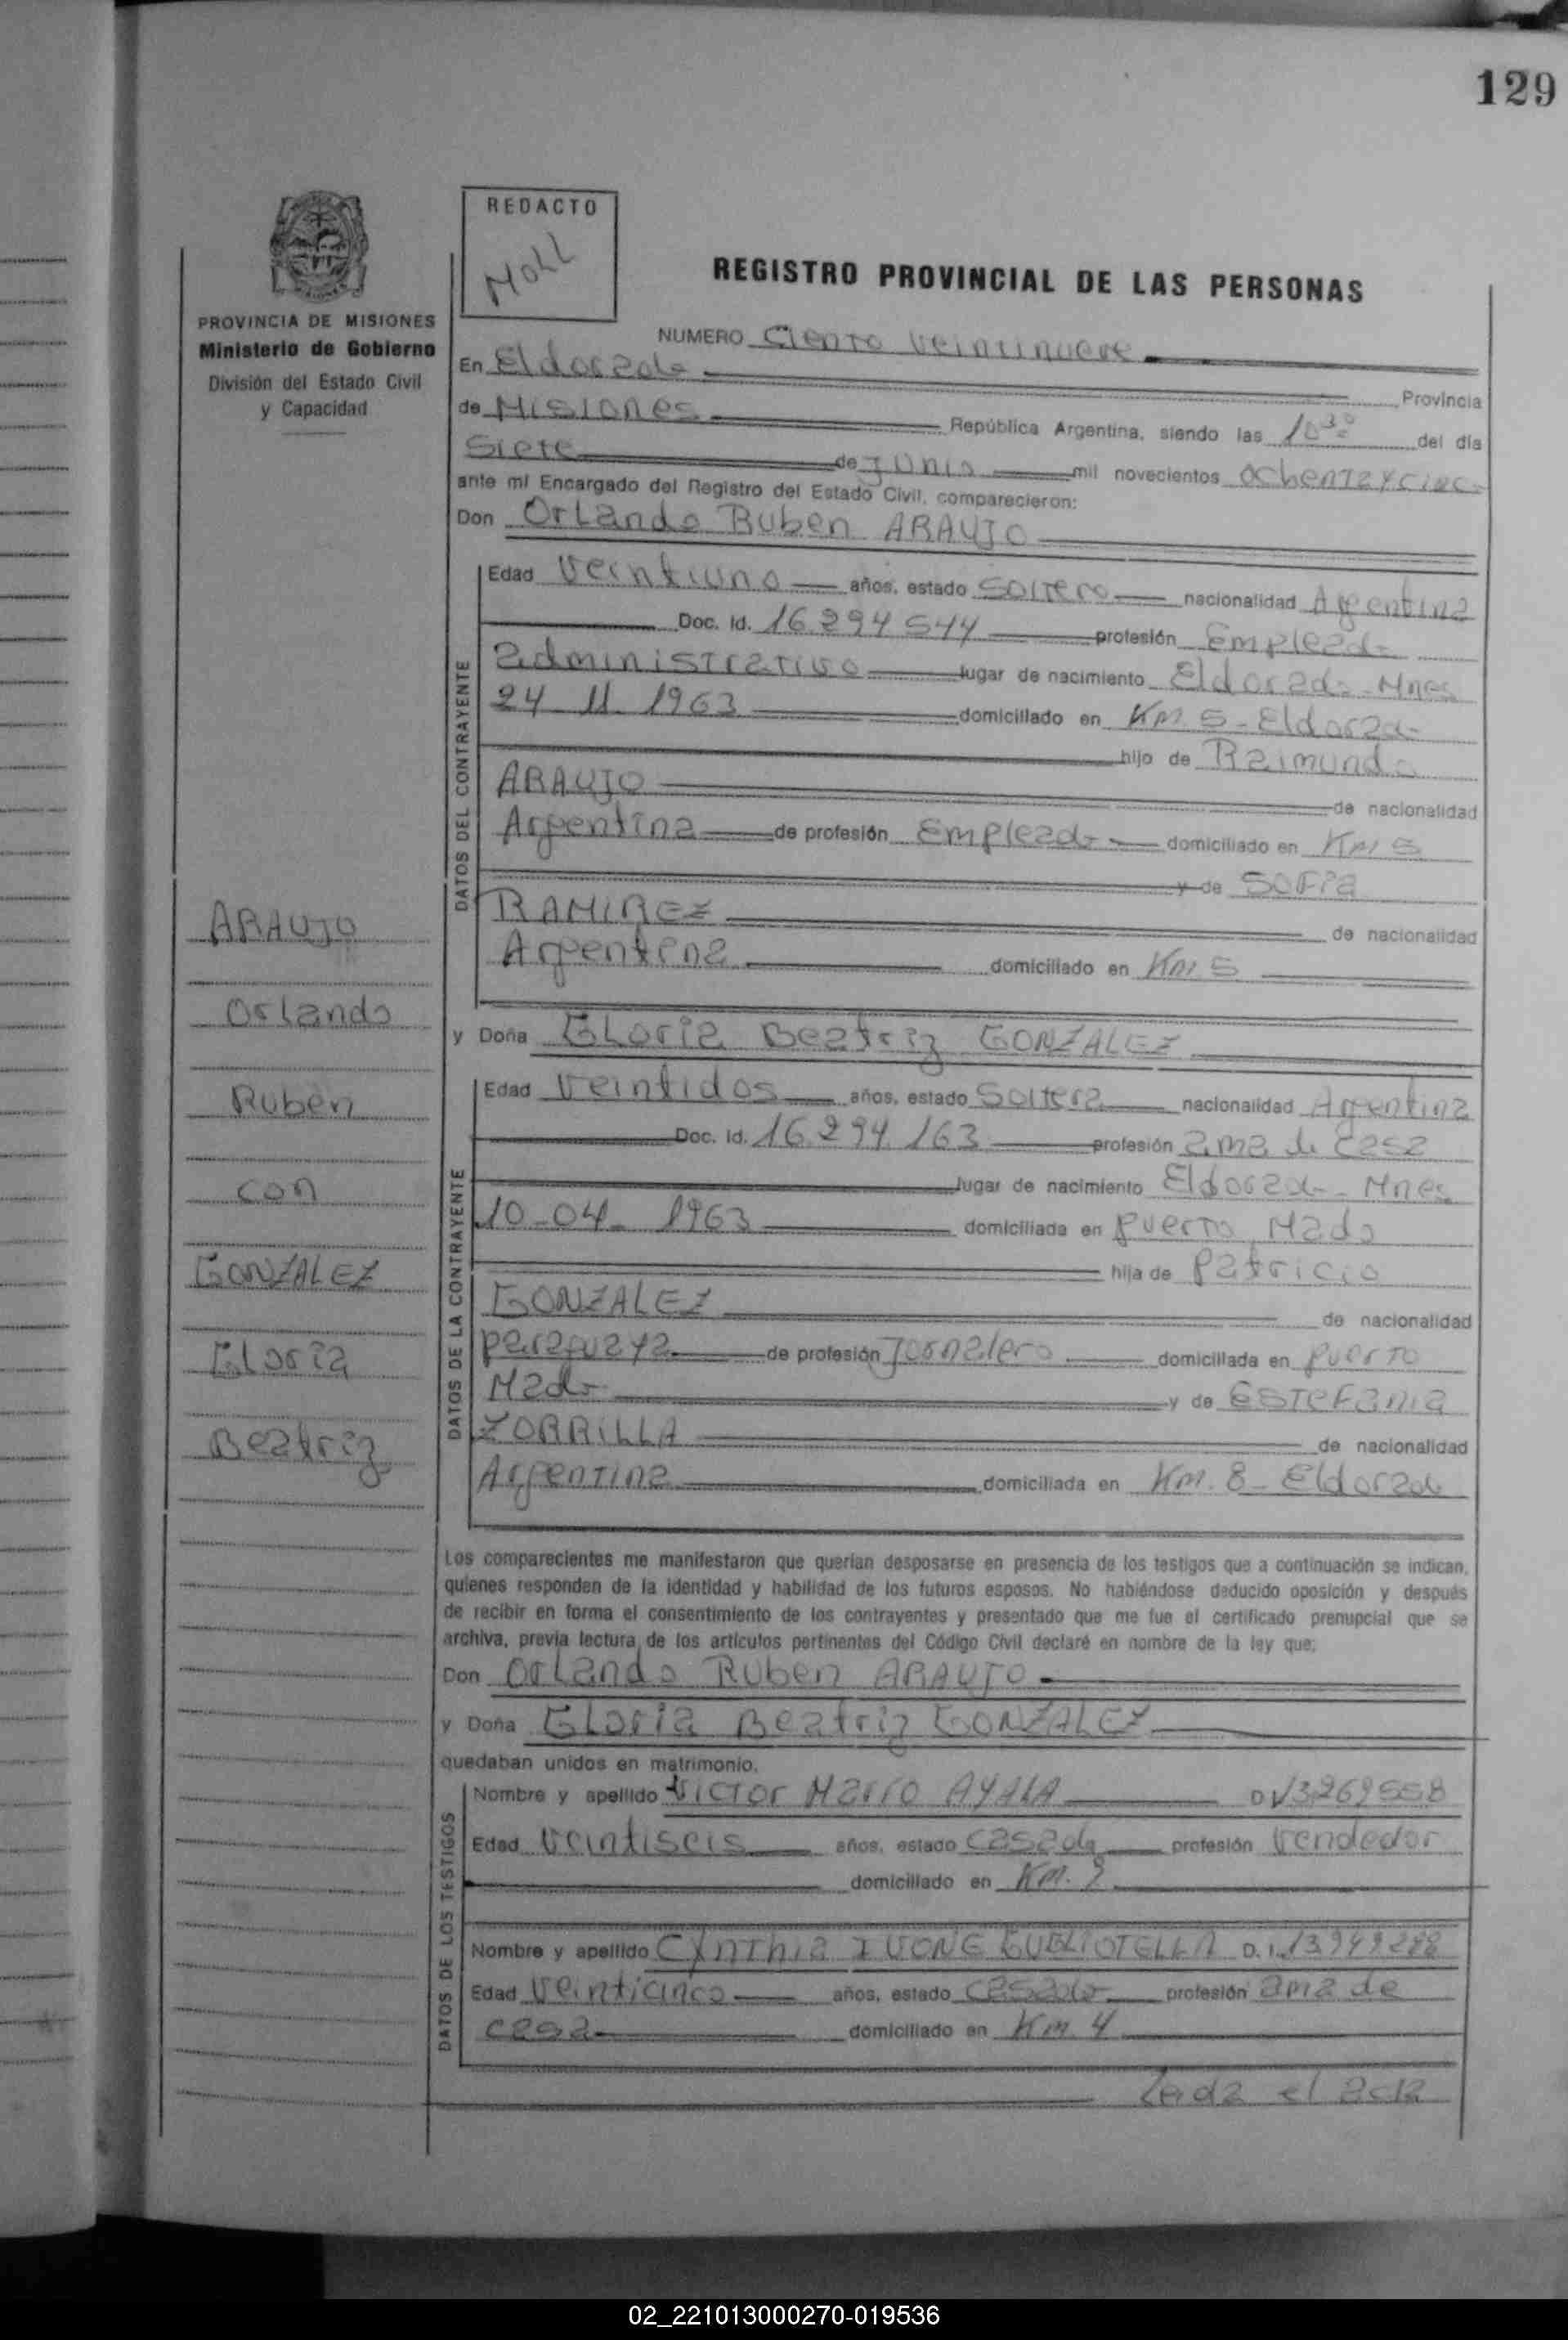 129
PROVINCIA DE MISIONES
Ministerio de Gobierno
División del Estado Civil
y Capacidad
REDACTO
MOLL
REGISTRO PROVINCIAL DE LAS PERSONAS
NUMERO Ciento veintinueve
En Eldorado Provincia
de Misiones República Argentina, siendo las 10³⁰ del día
Siete de Junio mil novecientos ochenta y cinco
ante mí Encargado del Registro del Estado Civil, comparecieron:
Don Orlando Ruben ARAUJO
DATOS DEL CONTRAYENTE
Edad Veintiuno años, estado Soltero nacionalidad Argentina
Doc. Id. 16.294 544 profesión Empleado
administrativo lugar de nacimiento Eldorado - Mnes
24 - 11 - 1963 domiciliado en Km. 5 - Eldorado
hijo de Raimundo
ARAUJO de nacionalidad
Argentina de profesión Empleado domiciliado en Km 5
y de Sofia
RAMIREZ de nacionalidad
Argentina domiciliado en Km. 5
y Doña Gloria Beatriz GONZALEZ
DATOS DE LA CONTRAYENTE
Edad Veintidos años, estado Soltera nacionalidad Argentina
Doc. Id. 16.294.163 profesión ama de casa
lugar de nacimiento Eldorado - Mnes
10 - 04 - 1963 domiciliada en puerto Mado
hija de Patricio
GONZALEZ de nacionalidad
paraguaya de profesión Jornalero domiciliada en puerto
Mado y de Estefania
ZORRILLA de nacionalidad
Argentina domiciliada en Km. 8 - Eldorado
Los comparecientes me manifestaron que querían desposarse en presencia de los testigos que a continuación se indican,
quienes responden de la identidad y habilidad de los futuros esposos. No habiéndose deducido oposición y después
de recibir en forma el consentimiento de los contrayentes y presentado que me fue el certificado prenupcial que se
archiva, previa lectura de los artículos pertinentes del Código Civil declaré en nombre de la ley que:
Don Orlando Ruben ARAUJO
y Doña Gloria Beatriz GONZALEZ
quedaban unidos en matrimonio.
DATOS DE LOS TESTIGOS
Nombre y apellido Victor Mario AYALA
Edad Veintiseis años, estado Casado profesión Vendedor
domiciliado en Km. 9
Nombre y apellido Cynthia IVONE D.I. 13949288
Edad Veinticinco años, estado casada profesión ama de
casa domiciliado en Km. 4
Leida el acta
ARAUJO
Orlando
Ruben
con
GONZALEZ
Gloria
Beatriz
02_221013000270-019536